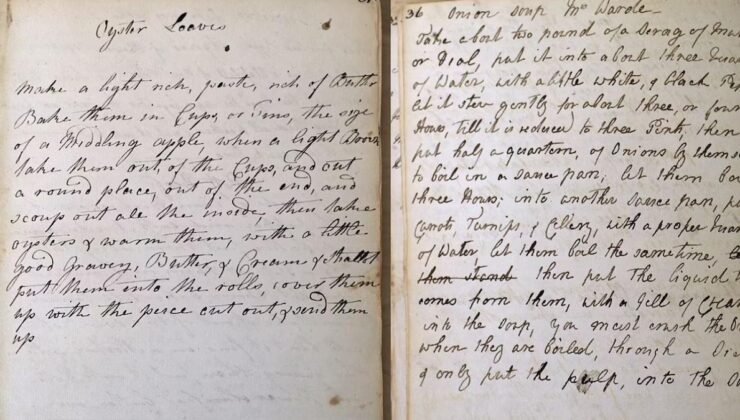 Oyster Loaves
Make a light rich, paste, rich of Butter
Bake them in Cups, or Tins, the size
of a Middling apple, when a light Brown
take them out, of the Cups, and cut
a round place, out of the end, and
scoup out all the inside, then take
oysters & warm them, with a little
good Gravey, Butter, & Cream & Shallot
put them into the rolls, cover them
up with the peice cut out, & send them
up
36 Onion soup Mrs Warde
Take about two pound of a Scrag of
or Veal, put it into about three
of Water, with a little white, & black
let it stew gently for about three, or four
Hours, till it is reduced to three Pints, then
put half a quartern, of Onions by themse
to boil in a sauce pan; let them bo
three Hours; into another sauce pan, pu
Carots, Turnips, & Cellery, with a proper
of Water, let them boil the same time,
them stand then put the liquid t
comes from them, with a Jell of Crea
into the soup, you must crush the O
when they are boiled, through a
& only put the pulp, into the